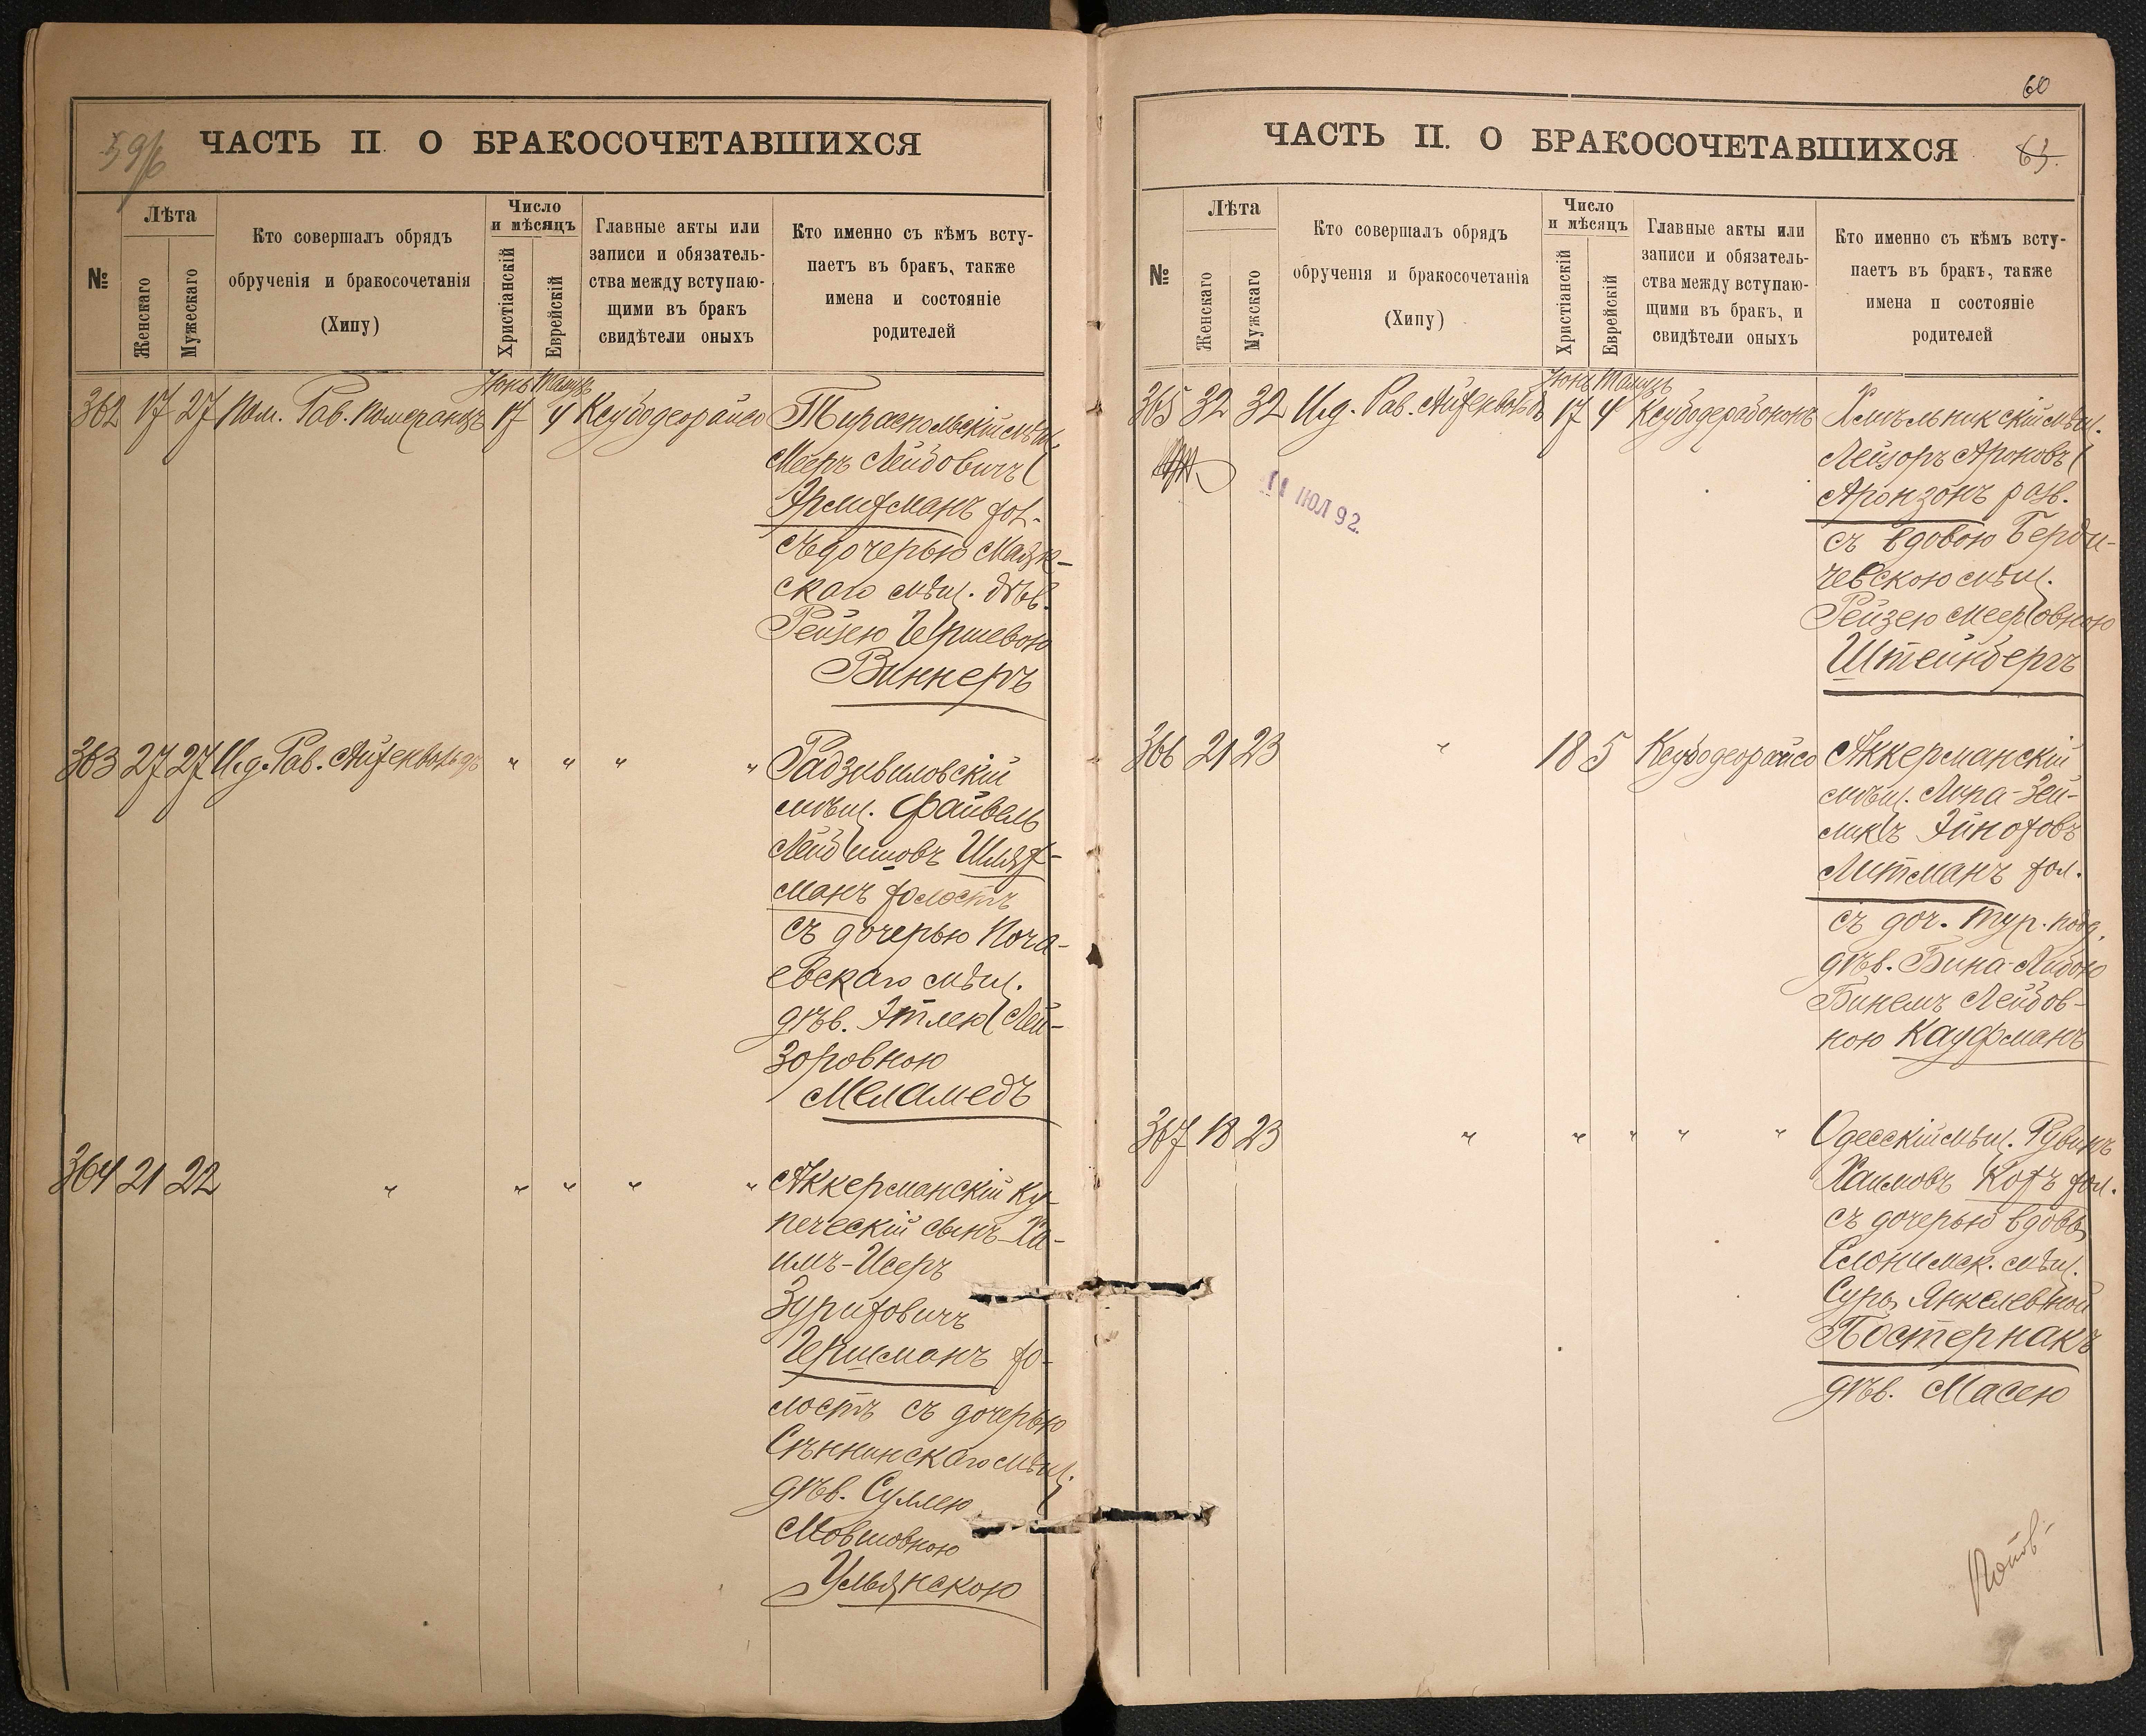 59/б
ЧАСТЬ II О БРАКОСОЧЕТАВШИХСЯ
№
Лѣта
Женскаго
Мужескаго
Кто совершалъ обрядъ
обрученія и бракосочетанія
(Хипу)
Число
и мѣсяцъ
Христіанскій
Еврейскій
Главные акты или
записи и обязатель-
ства между вступаю-
щими въ бракъ
свидѣтели оныхъ
Кто именно съ кѣмъ всту-
паетъ въ бракъ, также
имена и состояніе
родителей
Іюнь Тамузъ
362 17 27 Пом. Рав. Померанцъ 17 4 Ксубодеорайсо Тираспольскій мѣщ.
Мееръ Лейбовичъ
хол-
съ дочерью
скаго мѣщ. дѣв.
Рейзею Гершевою
Виннеръ
363 27 27 И.д. Рав. Айзенвольдъ " " " " Радзивиловскій
мѣщ. Файвель
Шляф-
манъ холостъ
съ дочерью Поча-
евскаго мѣщ.
дѣв. Этлею Лей-
зоровною
Меламедъ
364 21 22 " " " " " Аккерманскій ку-
печескій сынъ Ха-
имъ-Исеръ
Зурифовичъ
Гершманъ хо-
лостъ съ дочерью
Сѣннинскаго мѣщ.
дѣв. Сумлею
Мовшовною
Ульянскою
60
ЧАСТЬ II. О БРАКОСОЧЕТАВШИХСЯ
63.
№
Лѣта
Женскаго
Мужскаго
Кто совершалъ обрядъ
обрученія и бракосочетанія
(Хипу)
Число
и мѣсяцъ
Христіанскій
Еврейскій
Главные акты или
записи и обязатель-
ства между вступаю-
щими въ бракъ, и
свидѣтели оныхъ
Кто именно съ кѣмъ всту-
паетъ въ бракъ, также
имена и состояніе
родителей
Іюнь Тамузъ
365 32 32 И.д. Рав. Айзенвольдъ 17 4 Ксубодерабононъ Хмѣльникскій мѣщ.
Лейзоръ Ароновъ
Аронзонъ разв.
съ вдовою Берди-
чевскою мѣщ.
Рейзею Мееровною
Штейнбергъ
ІЮЛ 92
366 21 23 " 18 5 Ксубодеорайсо Аккерманскій
мѣщ. Липа-Зей-
Литманъ хол.
съ доч. тур. подд.
дѣв. Бина-Либою
Бинемъ Лейбов-
ною Кауфманъ
367 18 23 " " " " " Одесскій мѣщ. Рувинъ
Хаимовъ Кофъ хол.
съ дочерью вдовы
Слонимск. мѣщ.
Суры Янкелевной
Постернакъ
дѣв. Масею